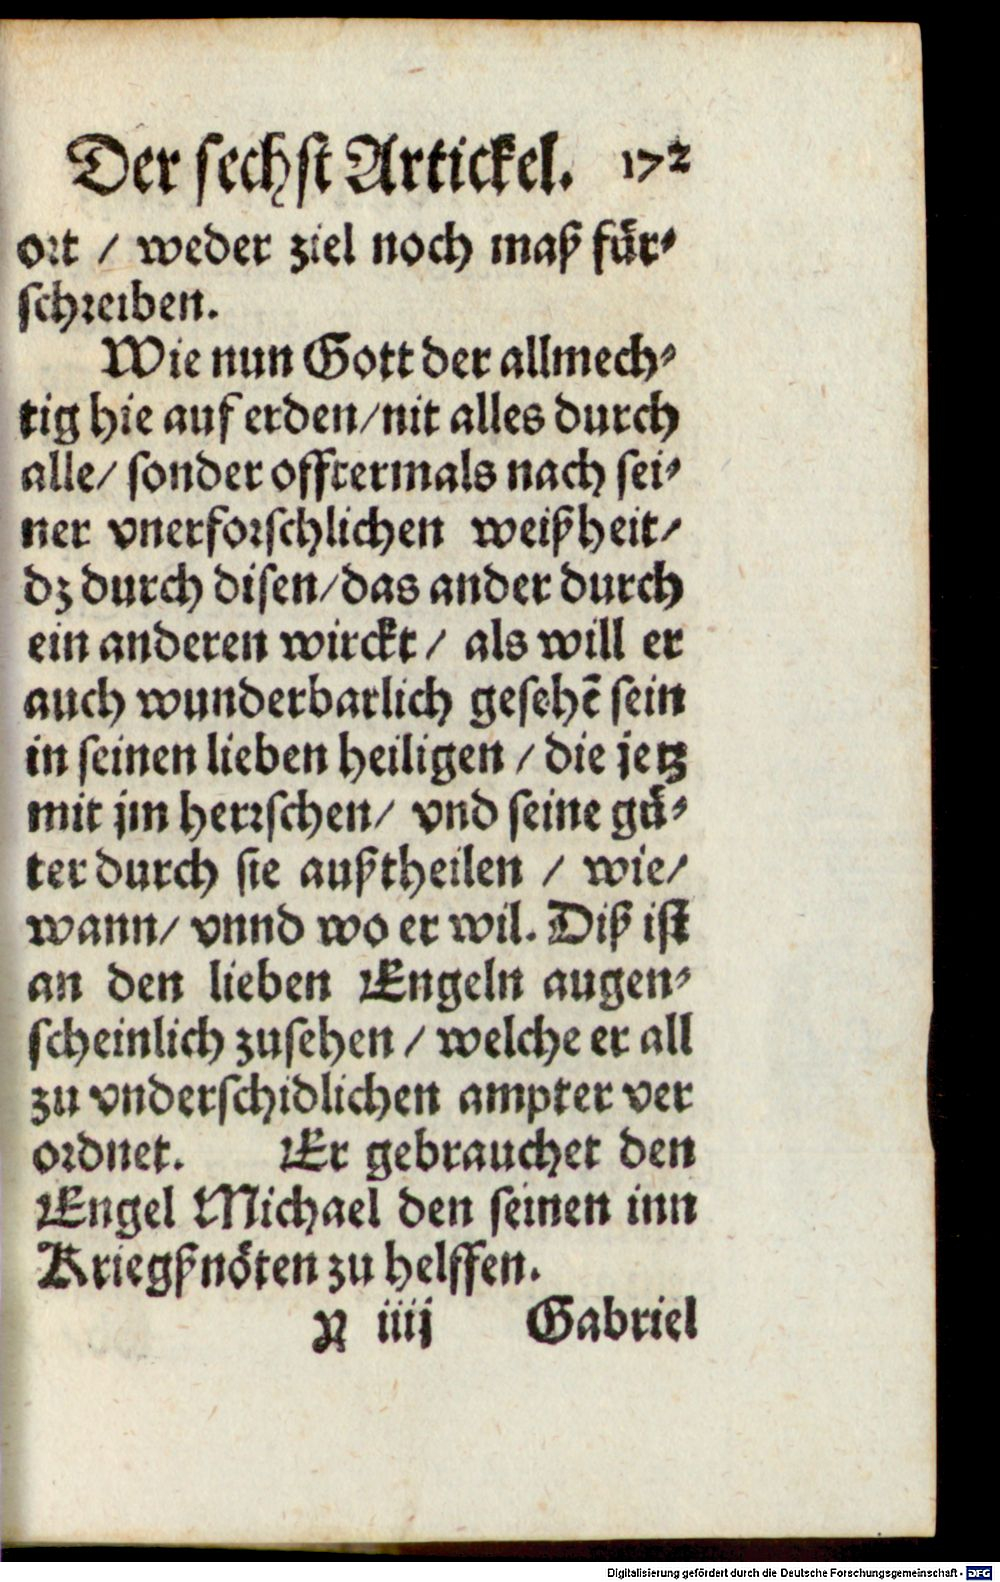 Der sechst Artickel. 172
ort / weder ziel noch maß für-
schreiben.
Wie nun Gott der allmech-
tig hie auf erden/nit alles durch
alle/ sonder offtermals nach sei-
ner vnerforschlichen weißheit/
dz durch disen/das ander durch
ein anderen wirckt / als will er
auch wunderbarlich gesehē sein
in seinen lieben heiligen / die jetz
mit jm herrschen/ vnd seine gü-
ter durch sie außtheilen / wie/
wann/ vnnd wo er wil. Diß ist
an den lieben Engeln augen-
scheinlich zusehen / welche er all
zu vnderschidlichen ampter ver
ordnet. Er gebrauchet den
Engel Michael den seinen inn
Kriegßnöten zu helffen.
Y iiij Gabriel
Digitalisierung gefördert durch die Deutsche Forschungsgemeinschaft - DFG